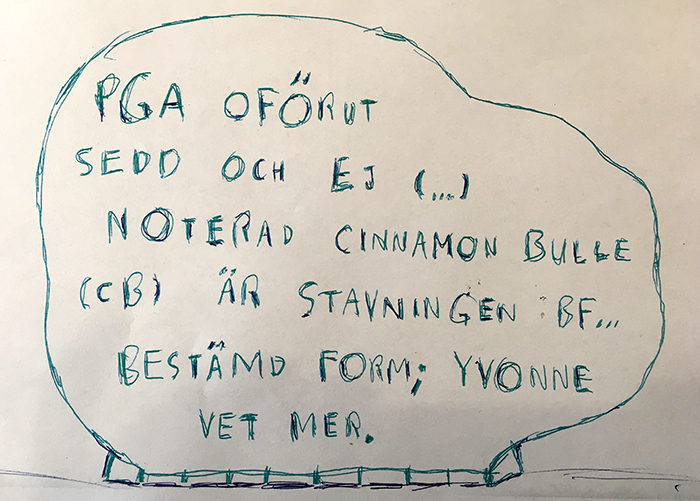 PGA OFÖRUT
SEDD OCH EJ (...)
NOTERAD CINNAMON BULLE
(CB) ÄR STAVNINGEN BF...
BESTÄMD FORM; YVONNE
VET MER.